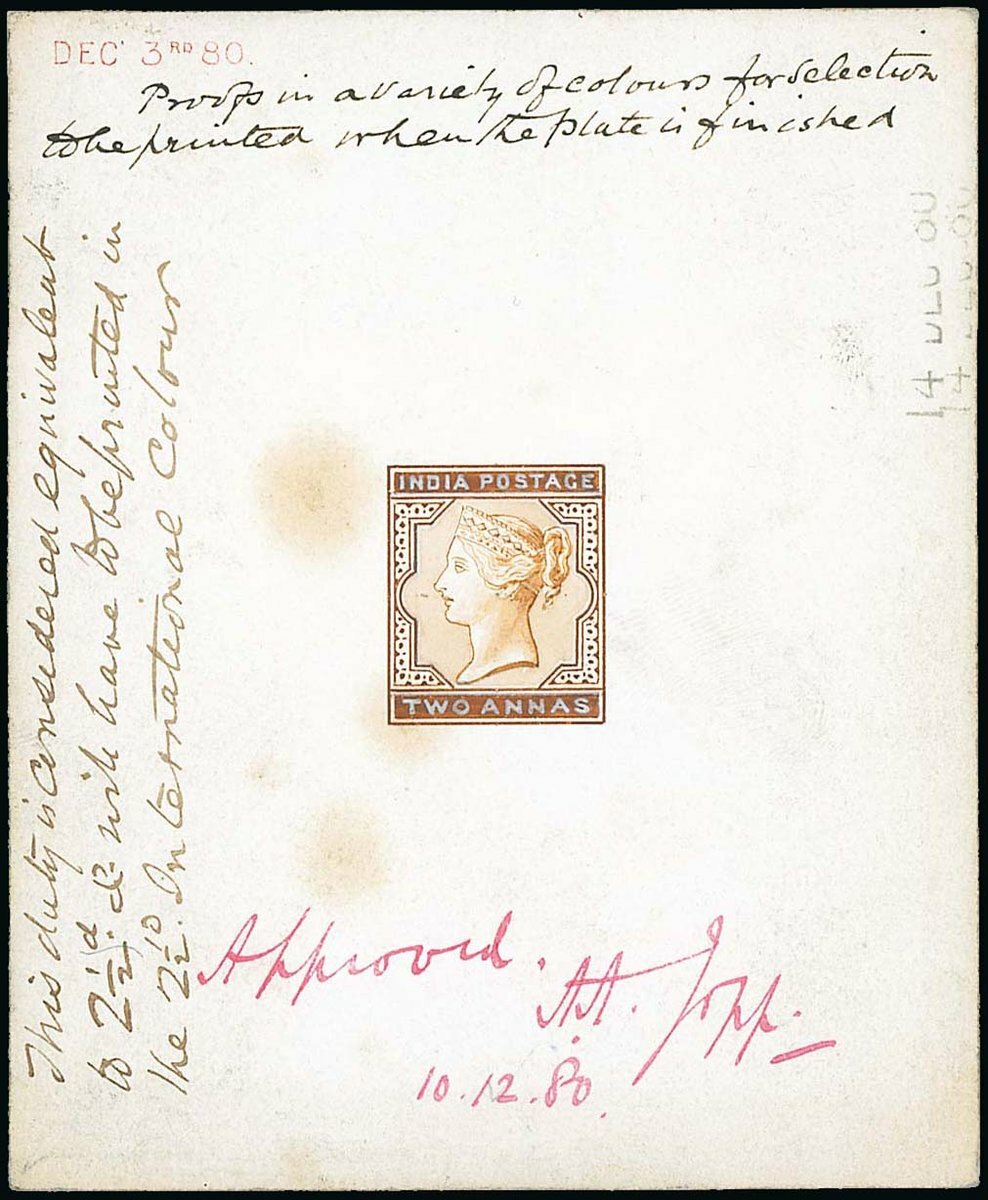 DEC' 3RD 80.
Proofs in a variety of colours for selection
to be printed when the plate is finished
This duty is considered equivalent
to 2½d & will have to be printed in
the 2½D International Colour
INDIA POSTAGE
TWO ANNAS
Approved.
10.12.80.
14 DEC 80
14